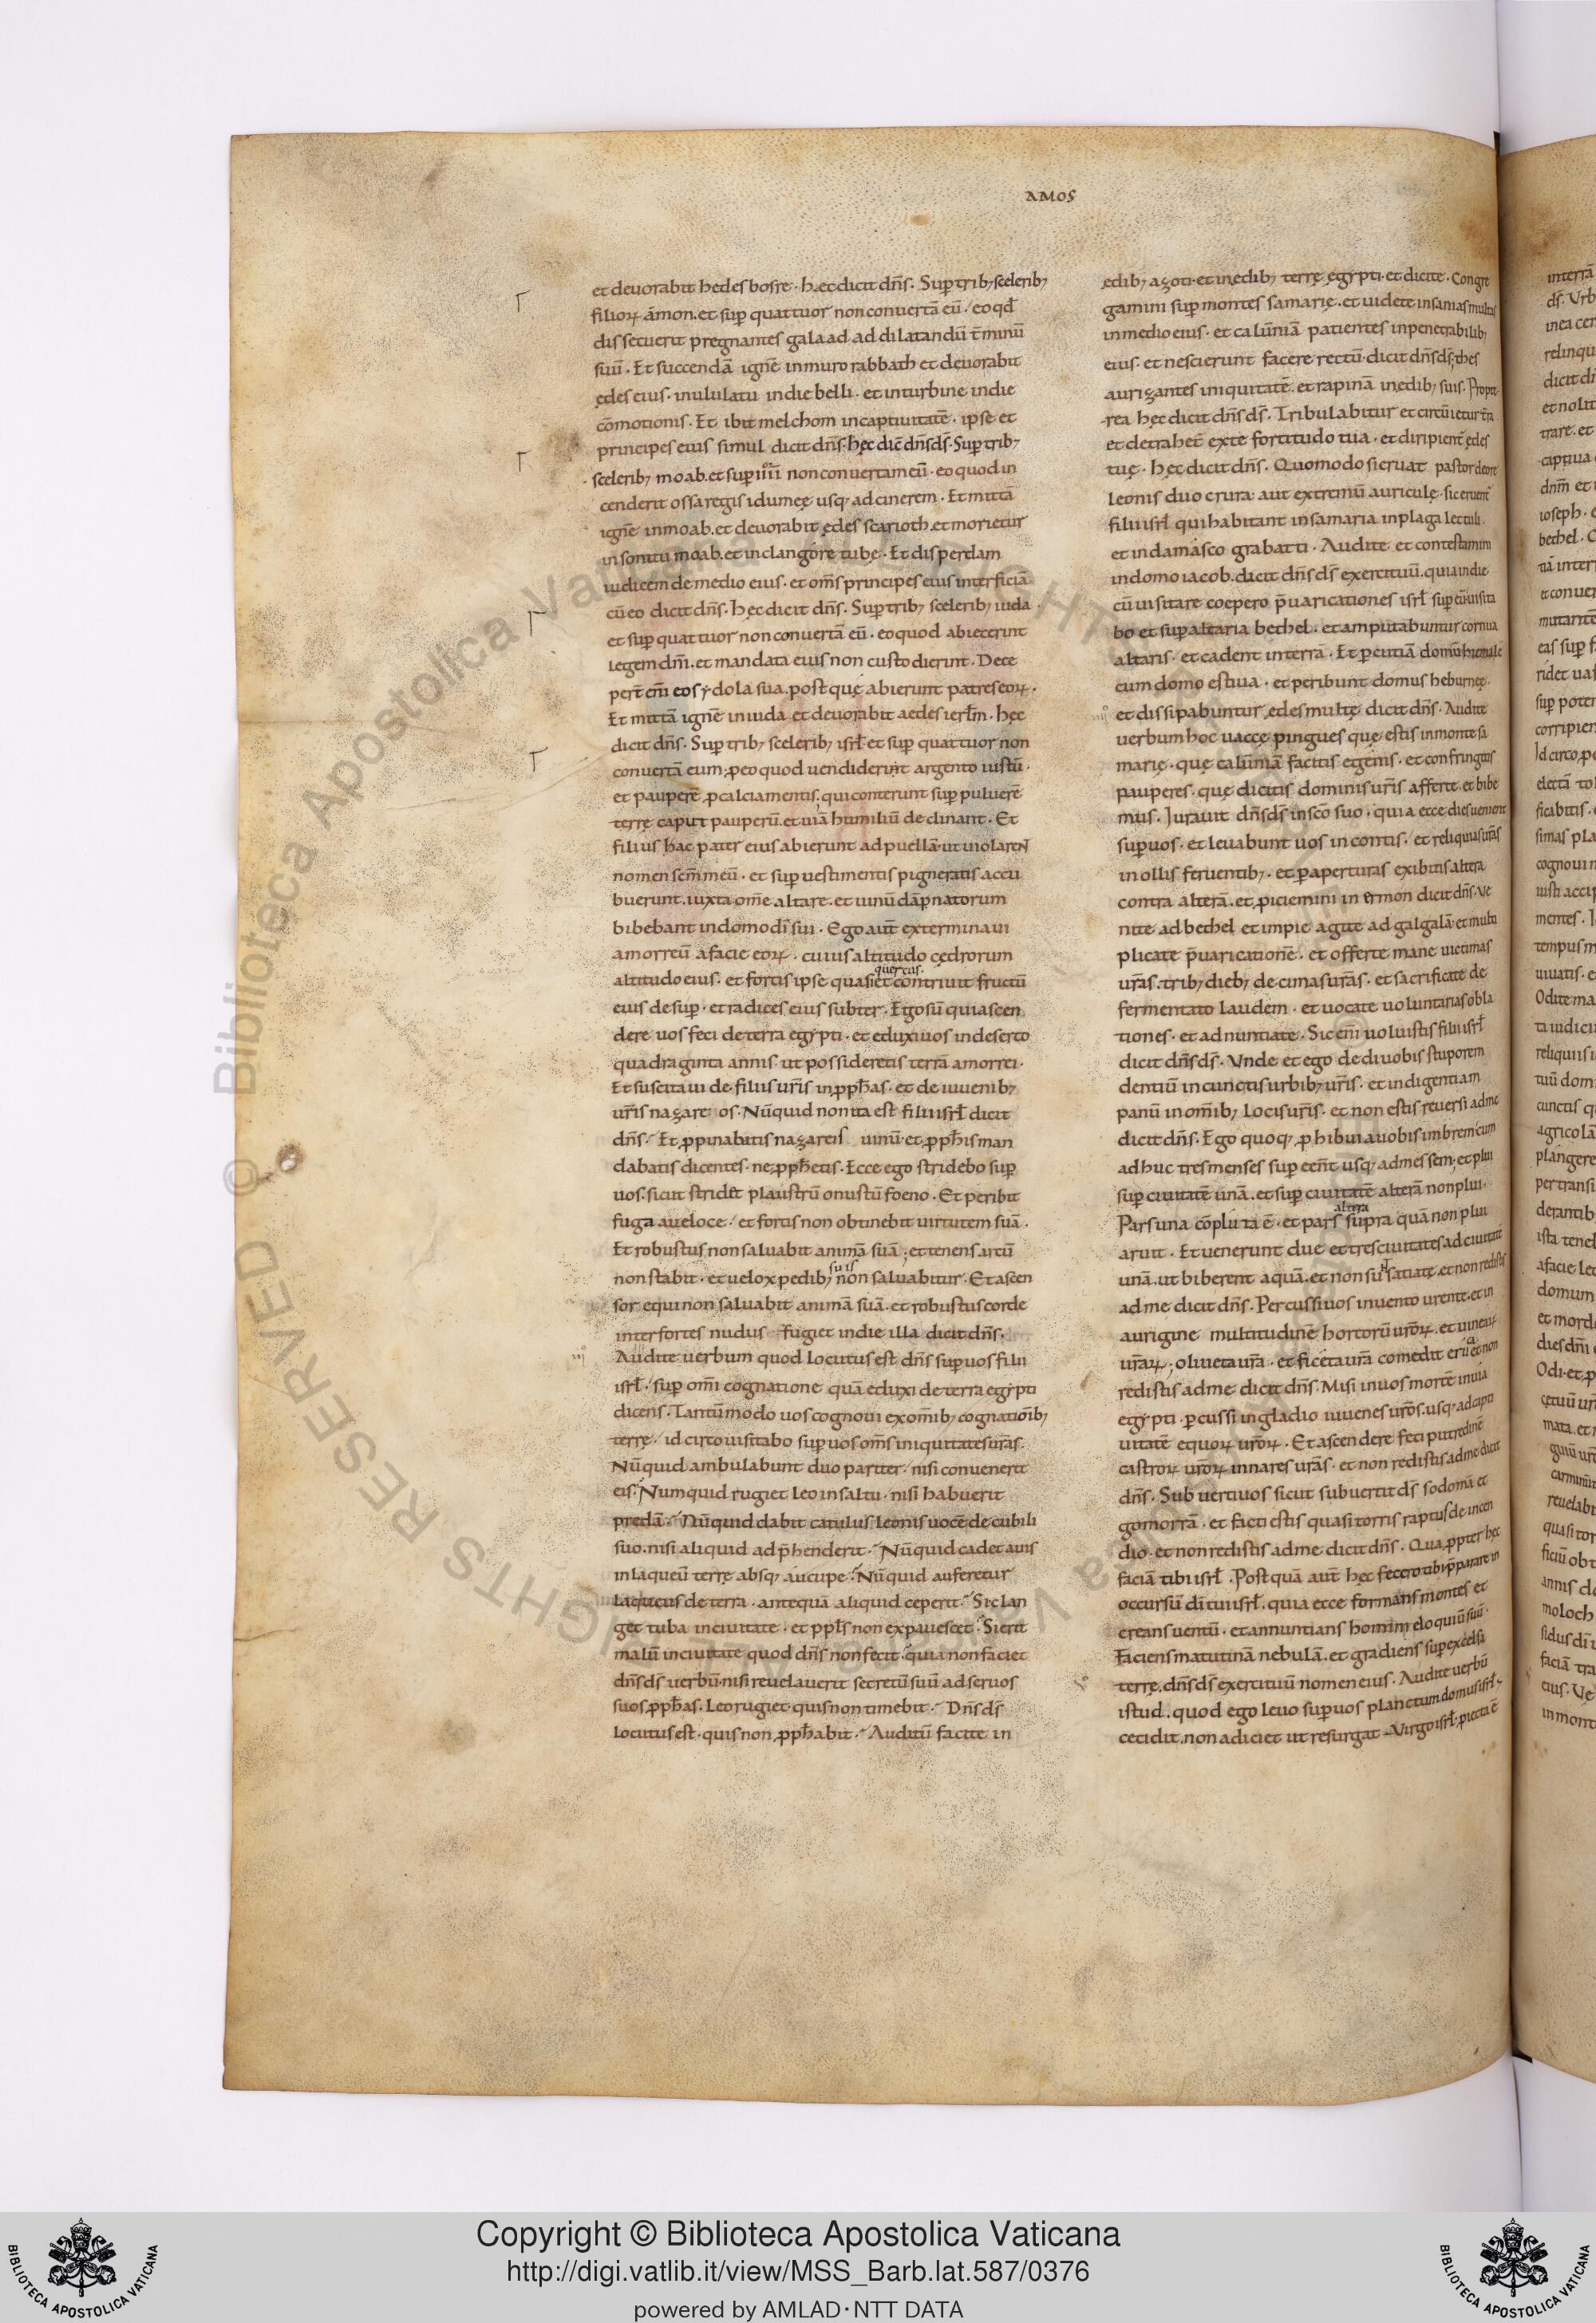 AMOS
et deuorabit hedes bosre · hęc dicit dn̄s. Sup trib; scelerib;
filioꝝ ámon. et sup quattuor non conuertā eū. eo qd̄
dissecuerit pregnantes galaad. ad dilatandū t̄minū
suū. Et succendā ignē in muro rabbath et deuorabit
ędes eius. in ululatu in die belli. et in turbine in die
cōmotionis. Et ibit melchom in captiuitatē. ipse et
principes eius simul dicit dn̄s. hęc dic̄ dn̄s ds̄. Sup trib;
scelerib; moab. et sup IIII non conuertam eū. eo quod in
cenderit ossa regis idumeę usq; ad cinerem. Et mittā
ignē in moab. et deuorabit ędes scarioth. et morietur
in sonitu moab. et in clangóre tubę. Et disperdam
iudicem de medio eius. et om̄s principes eius interficiā
cū eo dicit dn̄s. hęc dicit dn̄s. Sup trib; scelerib; iuda.
et sup quattuor non conuertā eū. eo quod abiecerint
legem dn̄i. et mandata eius non custodierint. Dece
per̄t em̄ eos ydola sua. post quę abierunt patres eoꝝ.
Et mittā ignē in iuda et deuorabit aedes ierl̄m. hęc
dicit dn̄s. Sup trib; scelerib; isrl̄. et sup quattuor non
conuertā eum; p eo quod uendiderint argento iustū.
et pauperē p calciamentis. qui conterunt sup puluerē
terrę caput pauperū. et uiā humiliū declinant. Et
filius hac pater eius abierunt ad puellā. ut uiolareN
nomen sc̄m meū. et sup uestimentis pigneratis accu
buerunt. iuxta om̄e altare. et uinū dāpnatorum
bibebant in domo di sui. Ego aut̄ exterminaui
amorreū a facie eoꝝ. cuius altitudo cędrorum
quercus.
altitudo eius. et fortis ipse quasi et contriuit fructū
eius desup. et radices eius subter. Ego sū qui ascen
dere uos feci de terra egypti. et eduxi uos in deserto
quadraginta annis. ut possideretis terrā amorrei.
Et suscitaui de filiis ur̄is in pph̄as. et de iuuenib;
ur̄is nazareos. Nūquid non ita est filii isrl̄ dicit
dn̄s. Et ppinabitis nazareis uinū. et pph̄is man
dabatis dicentes. ne pph̄etis. Ecce ego stridebo sup
uos. sicut stridet plaustrū onustū foeno. Et peribit
fuga a ueloce. et fortis non obtinebit uirtutem suā.
Et robustus non saluabit animā suā; et tenens arcū
suis
non stabit. et uelox pedib; non saluabitur. Et ascen
sor equi non saluabit animā suā. et robustus corde
inter fortes nudus fugiet in die illa dicit dn̄s.
Audite uerbum quod locutus est dn̄s sup uos filii
isrl̄. sup om̄i cognatione quā eduxi de terra egypti
dicens. Tantūmodo uos cognoui ex om̄ib; cognatiōib;
terrę. idcirco uisitabo sup uos om̄s iniquitates ur̄as.
Nūquid ambulabunt duo pariter. nisi conuenerit
eis. Numquid rugiet leo in saltu. nisi habuerit
predā. Nūquid dabit catulus leonis uocē de cubili
suo. nisi aliquid adp̄henderit. Nūquid cadet auis
in laqueū terrę absq; aucupe. Nūquid auferetur
laqueus de terra. antequā aliquid ceperit. Si clan
get tuba in ciuitate. et ppl̄s non expauescet. Si erit
malū in ciuitate quod dn̄s non fecit. quia non faciet
dn̄s ds̄ uerbū. nisi reuelauerit secretū suū. ad seruos
suos pph̄as. Leo rugiet. quis non timebit. Dn̄s ds̄
locutus est. quis non pph̄abit. Auditū facite in
edib; azoti. et in edib; terrę egypti. et dicite. Congre
gamini sup montes samarię. et uidete insanias multas
in medio eius. et calūniā patientes in penetrabilib;
eius. et nescierunt facere rectū. dicit dn̄s ds̄; thes
aurizantes iniquitatē. et rapinā in edib; suis. Propte
rea hęc dicit dn̄s ds̄. Tribulabitur et circūietur t̄ra
et detrahet̄ ex te fortitudo tua. et diripient̄ ędes
tuę. hęc dicit dn̄s. Quomodo si eruat pastor de ore
leonis duo crura. aut extremū auriculę. sic eruent̄
filii isrl̄ qui habitant in samaria in plaga lectuli.
et in damásco grabatti. Audite et contestamini
in domo iacob. dicit dn̄s ds̄ exercituū. quia in die
cū uisitare coepero p̄uaricationes isrl̄ sup eū. uisita
bo et sup altaria bethel. et amputabuntur cornua
altaris. et cadent in terrā. Et pcutiā domū hiemalē
cum domo estiua. et peribunt domus heburneę.
et dissipabuntur ędes multę dicit dn̄s. Audite
uerbum hoc uaccę pingues quę estis in monte sa
marię. quę calūniā facitis egenis. et confringitis
pauperes. quę dicitis dominis ur̄is afferte. et bibe
mus. Iurauit dn̄s ds̄ in sc̄o suo. quia ecce dies uenient
sup uos. et leuabunt uos in contis. et reliquias ur̄as
in ollis feruentib;. et p aperturas exibitis altera
contra alterā. et piciemini in ermon dicit dn̄s. Ve
nite ad bethel et impie agite ad galgalā. et multi
plicate p̄uaricationē. et offerte mane uictimas
ur̄as. trib; dieb; decimas ur̄as. et sacrificate de
fermentato laudem. et uocate uoluntarias obla
tiones. et adnuntiate. Sic em̄ uoluistis filii isrl̄
dicit dn̄s ds̄. Vnde et ego dedi uobis stuporem
dentiū in cunctis urbib; ur̄is. et indigentiam
panū in om̄ib; locis ur̄is. et non estis reuersi ad me
dicit dn̄s. Ego quoq; phibui a uobis imbrem cum
adhuc tres menses sup eēnt usq; ad messem; et plui
sup ciuitatē unā. et sup ciuitatē alterā non plui.
altera
Pars una cōpluta ē. et pars supra quā non plui
aruit. Et uenerunt due et tres ciuitates ad ciuitatē
unā. ut biberent aquā. et non sūt satiate. et non redistis
ad me dicit dn̄s. Percussi uos in uento urente. et in
aurigine multitudinē hortorū ur̄oꝝ. et uineaꝝ
ur̄aꝝ; oliueta ur̄a. et ficeta ur̄a comedit eruca et non
redistis ad me dicit dn̄s. Misi in uos mortē in uia
egypti. pcussi in gladio iuuenes ur̄os. usq; ad capti
uitatē equoꝝ ur̄oꝝ. Et ascendere feci putredinē
castroꝝ ur̄oꝝ in nares ur̄as. et non redistis ad me dicit
dn̄s. Subuerti uos sicut subuertit ds̄ sodomā et
gomorrā. et facti estis quasi torris raptus de incen
dio. et non redistis ad me dicit dn̄s. Qua ppter hęc
faciā tibi isrl̄. Post quā aut̄ hęc fecero tibi p̄parare in
occursū di tui isrl̄. quia ecce formans montes et
creans uentū. et annuntians homini eloquiū suū.
Faciens matutinā nebulā. et gradiens sup excelsa
terrę. dn̄s ds̄ exercituū nomen eius. Audite uerbū
istud. quod ego leuo sup uos planctum domus isrl̄.
cecidit. non adiciet ut resurgat. Virgo isrl̄ piecta ē
Copyright © Biblioteca Apostolica Vaticana
http://digi.vatlib.it/view/MSS_Barb.lat.587/0376
powered by AMLAD·NTT DATA